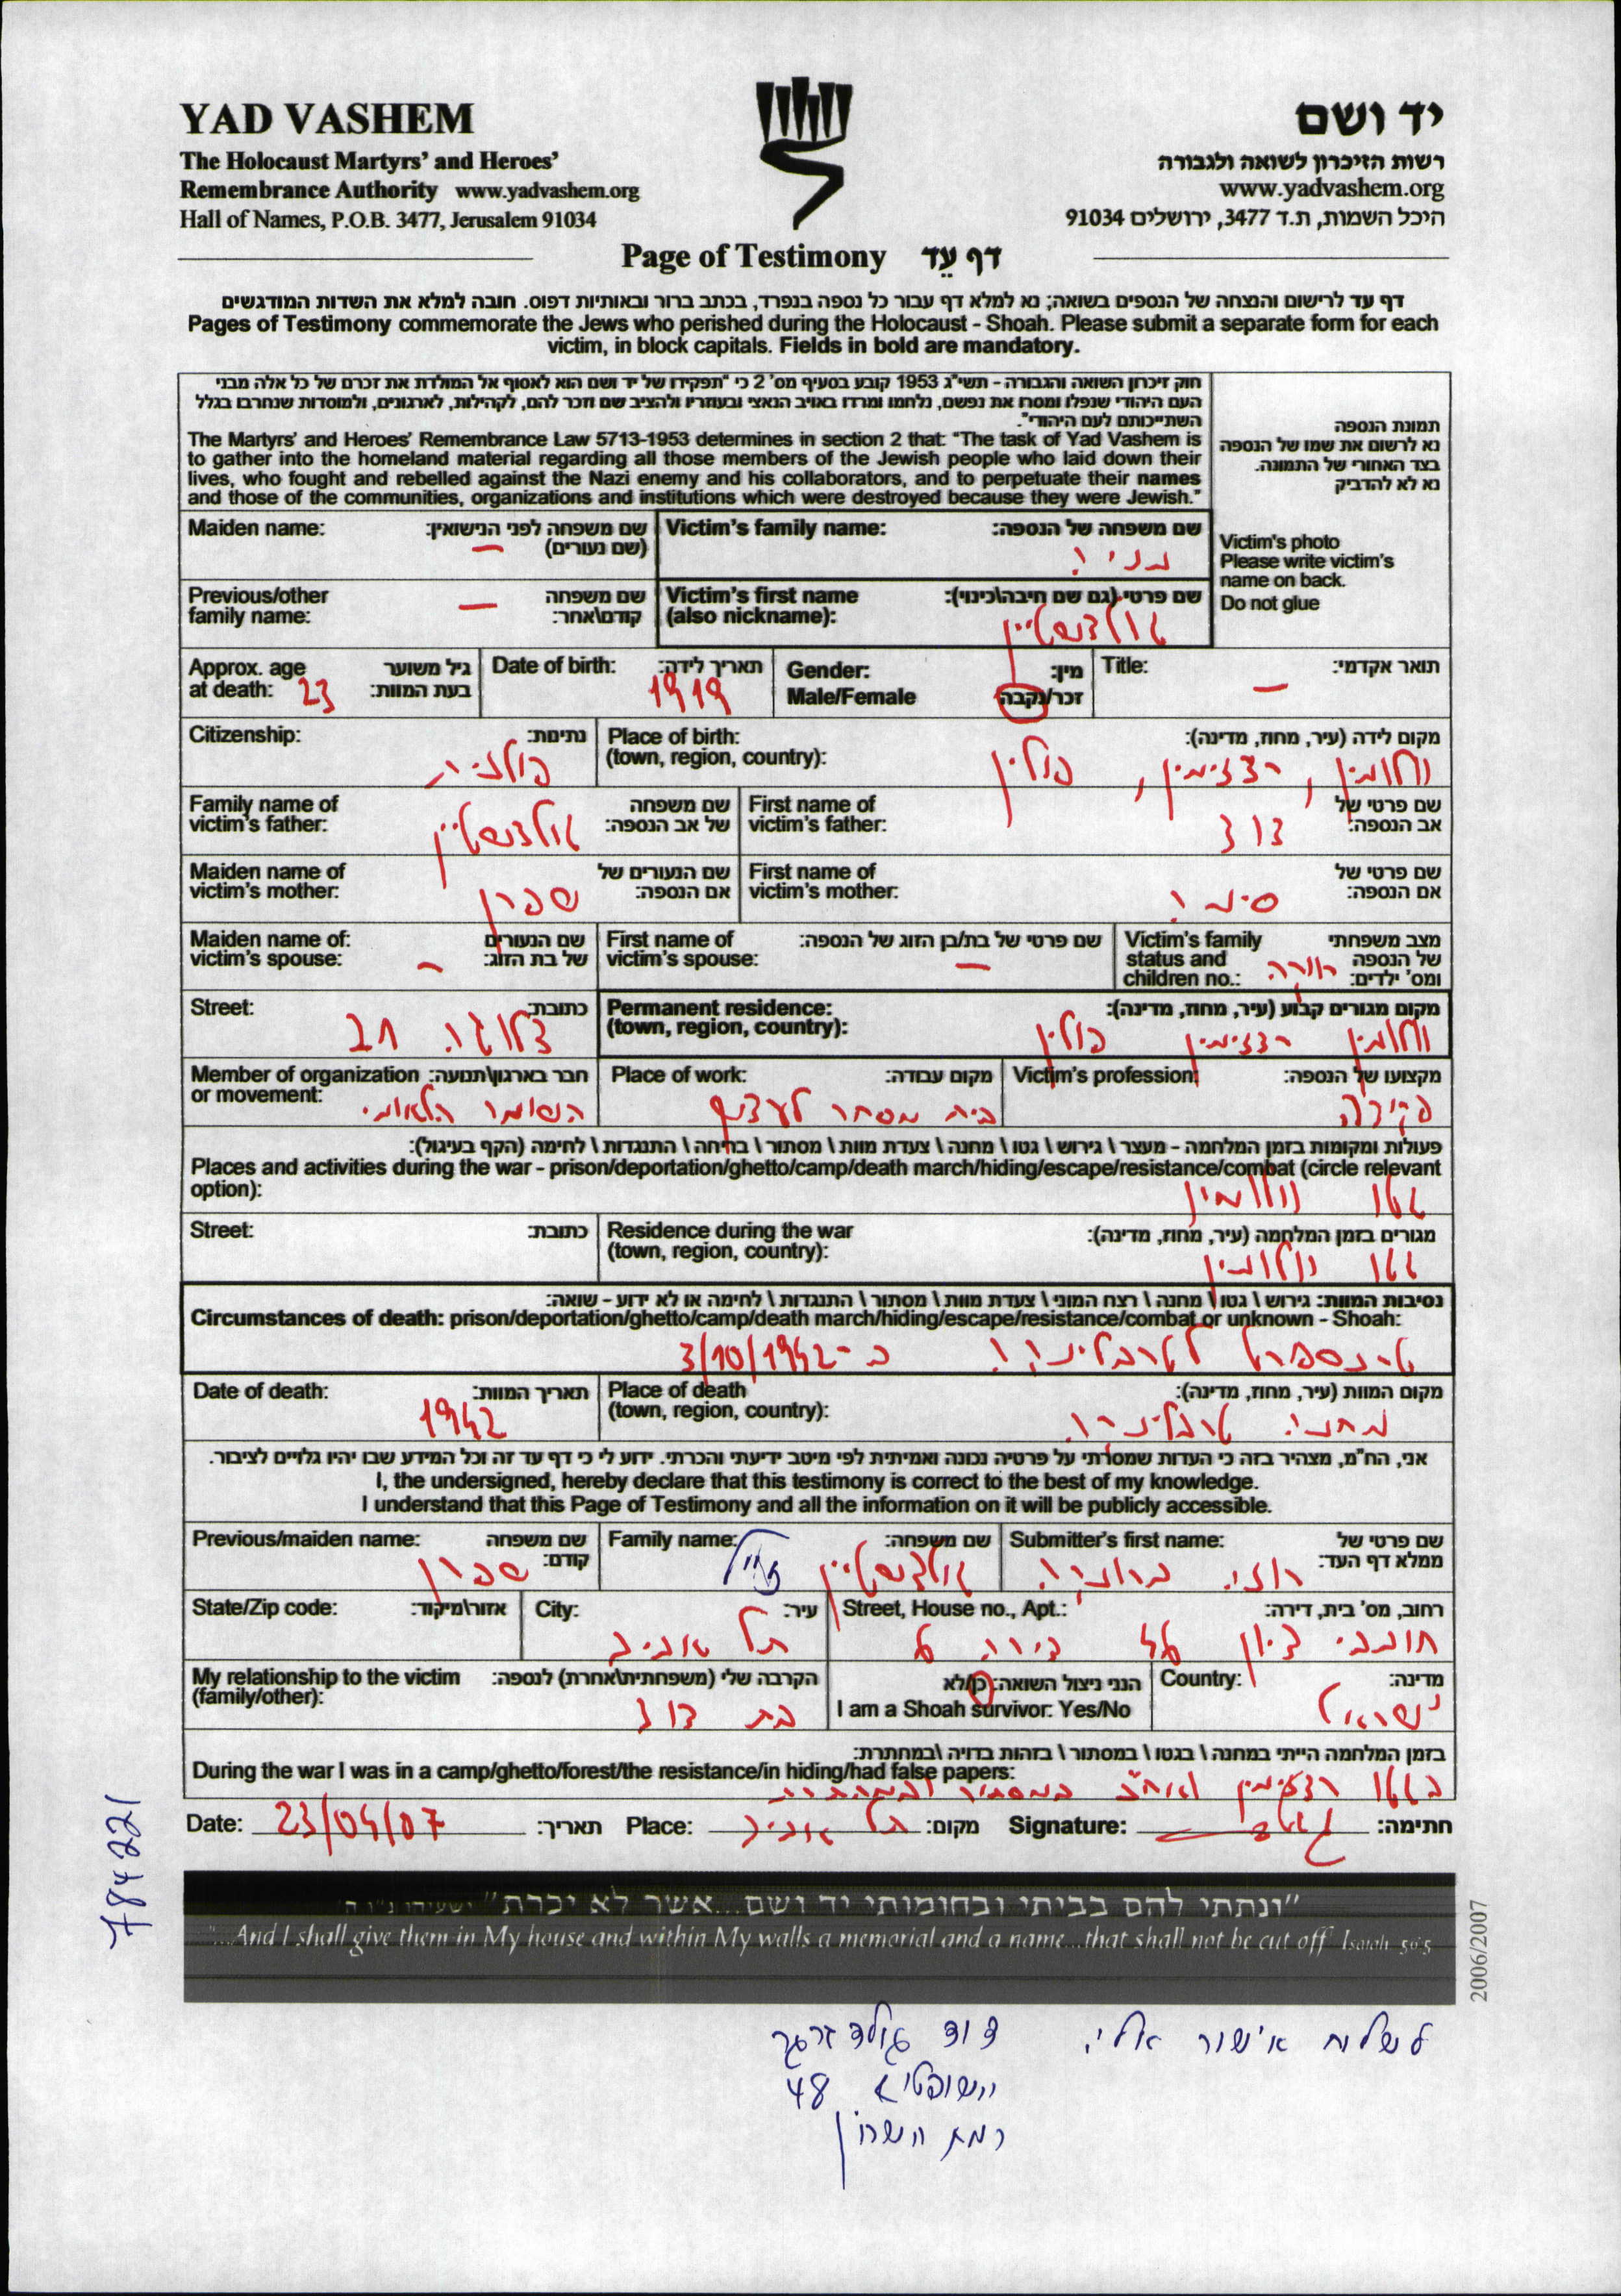 YAD VASHEM
The Holocaust Martyrs' and Heroes'
Remembrance Authority www.yadvashem.org
Hall of Names, P.O.B. 3477, Jerusalem 91034
יד ושם
רשות הזיכרון לשואה ולגבורה
www.yadvashem.org
היכל השמות, ת.ד 3477, ירושלים 91034
Page of Testimony דף עֵד
דף עד לרישום והנצחה של הנספים בשואה; נא למלא דף עבור כל נספה בנפרד, בכתב ברור ובאותיות דפוס. חובה למלא את השדות המודגשים
Pages of Testimony commemorate the Jews who perished during the Holocaust - Shoah. Please submit a separate form for each
victim, in block capitals. Fields in bold are mandatory.
חוק זיכרון השואה והגבורה - תשי"ג 1953 קובע בסעיף מס' 2 כי "תפקידו של יד ושם הוא לאסוף אל המולדת את זכרם של כל אלה מבני
העם היהודי שנפלו ומסרו את נפשם, נלחמו ומרדו באויב הנאצי ובעוזריו ולהציב שם וזכר להם, לקהילות, לארגונים, ולמוסדות שנחרבו בגלל
השתייכותם לעם היהודי".
The Martyrs' and Heroes' Remembrance Law 5713-1953 determines in section 2 that: "The task of Yad Vashem is
to gather into the homeland material regarding all those members of the Jewish people who laid down their
lives, who fought and rebelled against the Nazi enemy and his collaborators, and to perpetuate their names
and those of the communities, organizations and institutions which were destroyed because they were Jewish."
תמונת הנספה
נא לרשום את שמו של הנספה
בצד האחורי של התמונה.
נא לא להדביק
Victim's photo
Please write victim's
name on back.
Do not glue
Victim's family name: שם משפחה של הנספה:
Maiden name: שם משפחה לפני הנישואין:
(שם נעורים) –
Victim's first name שם פרטי (גם שם חיבה\כינוי):
(also nickname):
גולדשטיין
Previous/other שם משפחה
family name: קודם\אחר: –
Title: תואר אקדמי: –
Gender: מין:
Male/Female זכר/נקבה
Date of birth: תאריך לידה:
1919
Approx. age גיל משוער
at death: 23 בעת המוות:
Place of birth: מקום לידה (עיר, מחוז, מדינה):
(town, region, country): וולומין, רדזימין, פולין
Citizenship: נתינות:
פולניה
First name of שם פרטי של
victim's father: אב הנספה:
דוד
Family name of שם משפחה
victim's father: של אב הנספה:
גולדשטיין
First name of שם פרטי של
victim's mother: אם הנספה:
Maiden name of שם הנעורים של
victim's mother: אם הנספה:
שפרן
Victim's family מצב משפחתי
status and של הנספה
children no.: ומס' ילדים: רווקה
First name of שם פרטי של בת/בן הזוג של הנספה:
victim's spouse: –
Maiden name of: שם הנעורים
victim's spouse: של בת הזוג: –
Permanent residence: מקום מגורים קבוע (עיר, מחוז, מדינה):
(town, region, country): וולומין רדזימין פולין
Street: כתובת:
Victim's profession: מקצועו של הנספה:
פקידה
Place of work: מקום עבודה:
בית מסחר לעצים
Member of organization חבר בארגון\תנועה:
or movement: השומר הלאומי
פעולות ומקומות בזמן המלחמה - מעצר \ גירוש \ גטו \ מחנה \ צעדת מוות \ מסתור \ בריחה \ התנגדות \ לחימה (הקף בעיגול):
Places and activities during the war - prison/deportation/ghetto/camp/death march/hiding/escape/resistance/combat (circle relevant
option):
גטו וולומין
Residence during the war מגורים בזמן המלחמה (עיר, מחוז, מדינה):
(town, region, country):
גטו וולומין
Street: כתובת:
נסיבות המוות: גירוש \ גטו \ מחנה \ רצח המוני \ צעדת מוות \ מסתור \ התנגדות \ לחימה או לא ידוע - שואה:
Circumstances of death: prison/deportation/ghetto/camp/death march/hiding/escape/resistance/combat or unknown - Shoah:
טרנספורט לטרבלינקה ב-3/10/1942
Place of death מקום המוות (עיר, מחוז, מדינה):
(town, region, country):
מחנה טרבלינקה
Date of death: תאריך המוות:
1942
אני, הח"מ, מצהיר בזה כי העדות שמסרתי על פרטיה נכונה ואמיתית לפי מיטב ידיעתי והכרתי. ידוע לי כי דף עד זה וכל המידע שבו יהיו גלויים לציבור.
I, the undersigned, hereby declare that this testimony is correct to the best of my knowledge.
I understand that this Page of Testimony and all the information on it will be publicly accessible.
Submitter's first name: שם פרטי של
ממלא דף העד:
Family name: שם משפחה:
גולדשטיין
Previous/maiden name: שם משפחה
קודם: שפרן
Street, House no., Apt.: רחוב, מס' בית, דירה:
חובבי ציון דירה
City: עיר:
תל אביב
State/Zip code: אזור\מיקוד:
Country: מדינה:
ישראל
הנני ניצול השואה: כן/לא
I am a Shoah survivor: Yes/No
My relationship to the victim הקרבה שלי (משפחתית\אחרת) לנספה:
(family/other):
בת דוד
בזמן המלחמה הייתי במחנה \ בגטו \ במסתור \ בזהות בדויה \במחתרת:
During the war I was in a camp/ghetto/forest/the resistance/in hiding/had false papers:
בגטו רדזימין ואח"כ במסתור
Date: 23/04/07 תאריך: Place: תל אביב מקום: Signature: חתימה:
784221
"ונתתי להם בביתי ובחומותי יד ושם...אשר לא יכרת" ישעיהו נ"ו ה'
"...And I shall give them in My house and within My walls a memorial and a name...that shall not be cut off" Isaiah 56:5
2006/2007
לשלוח אישור אלי: דוד גולדברגר
השופטים 48
רמת השרון